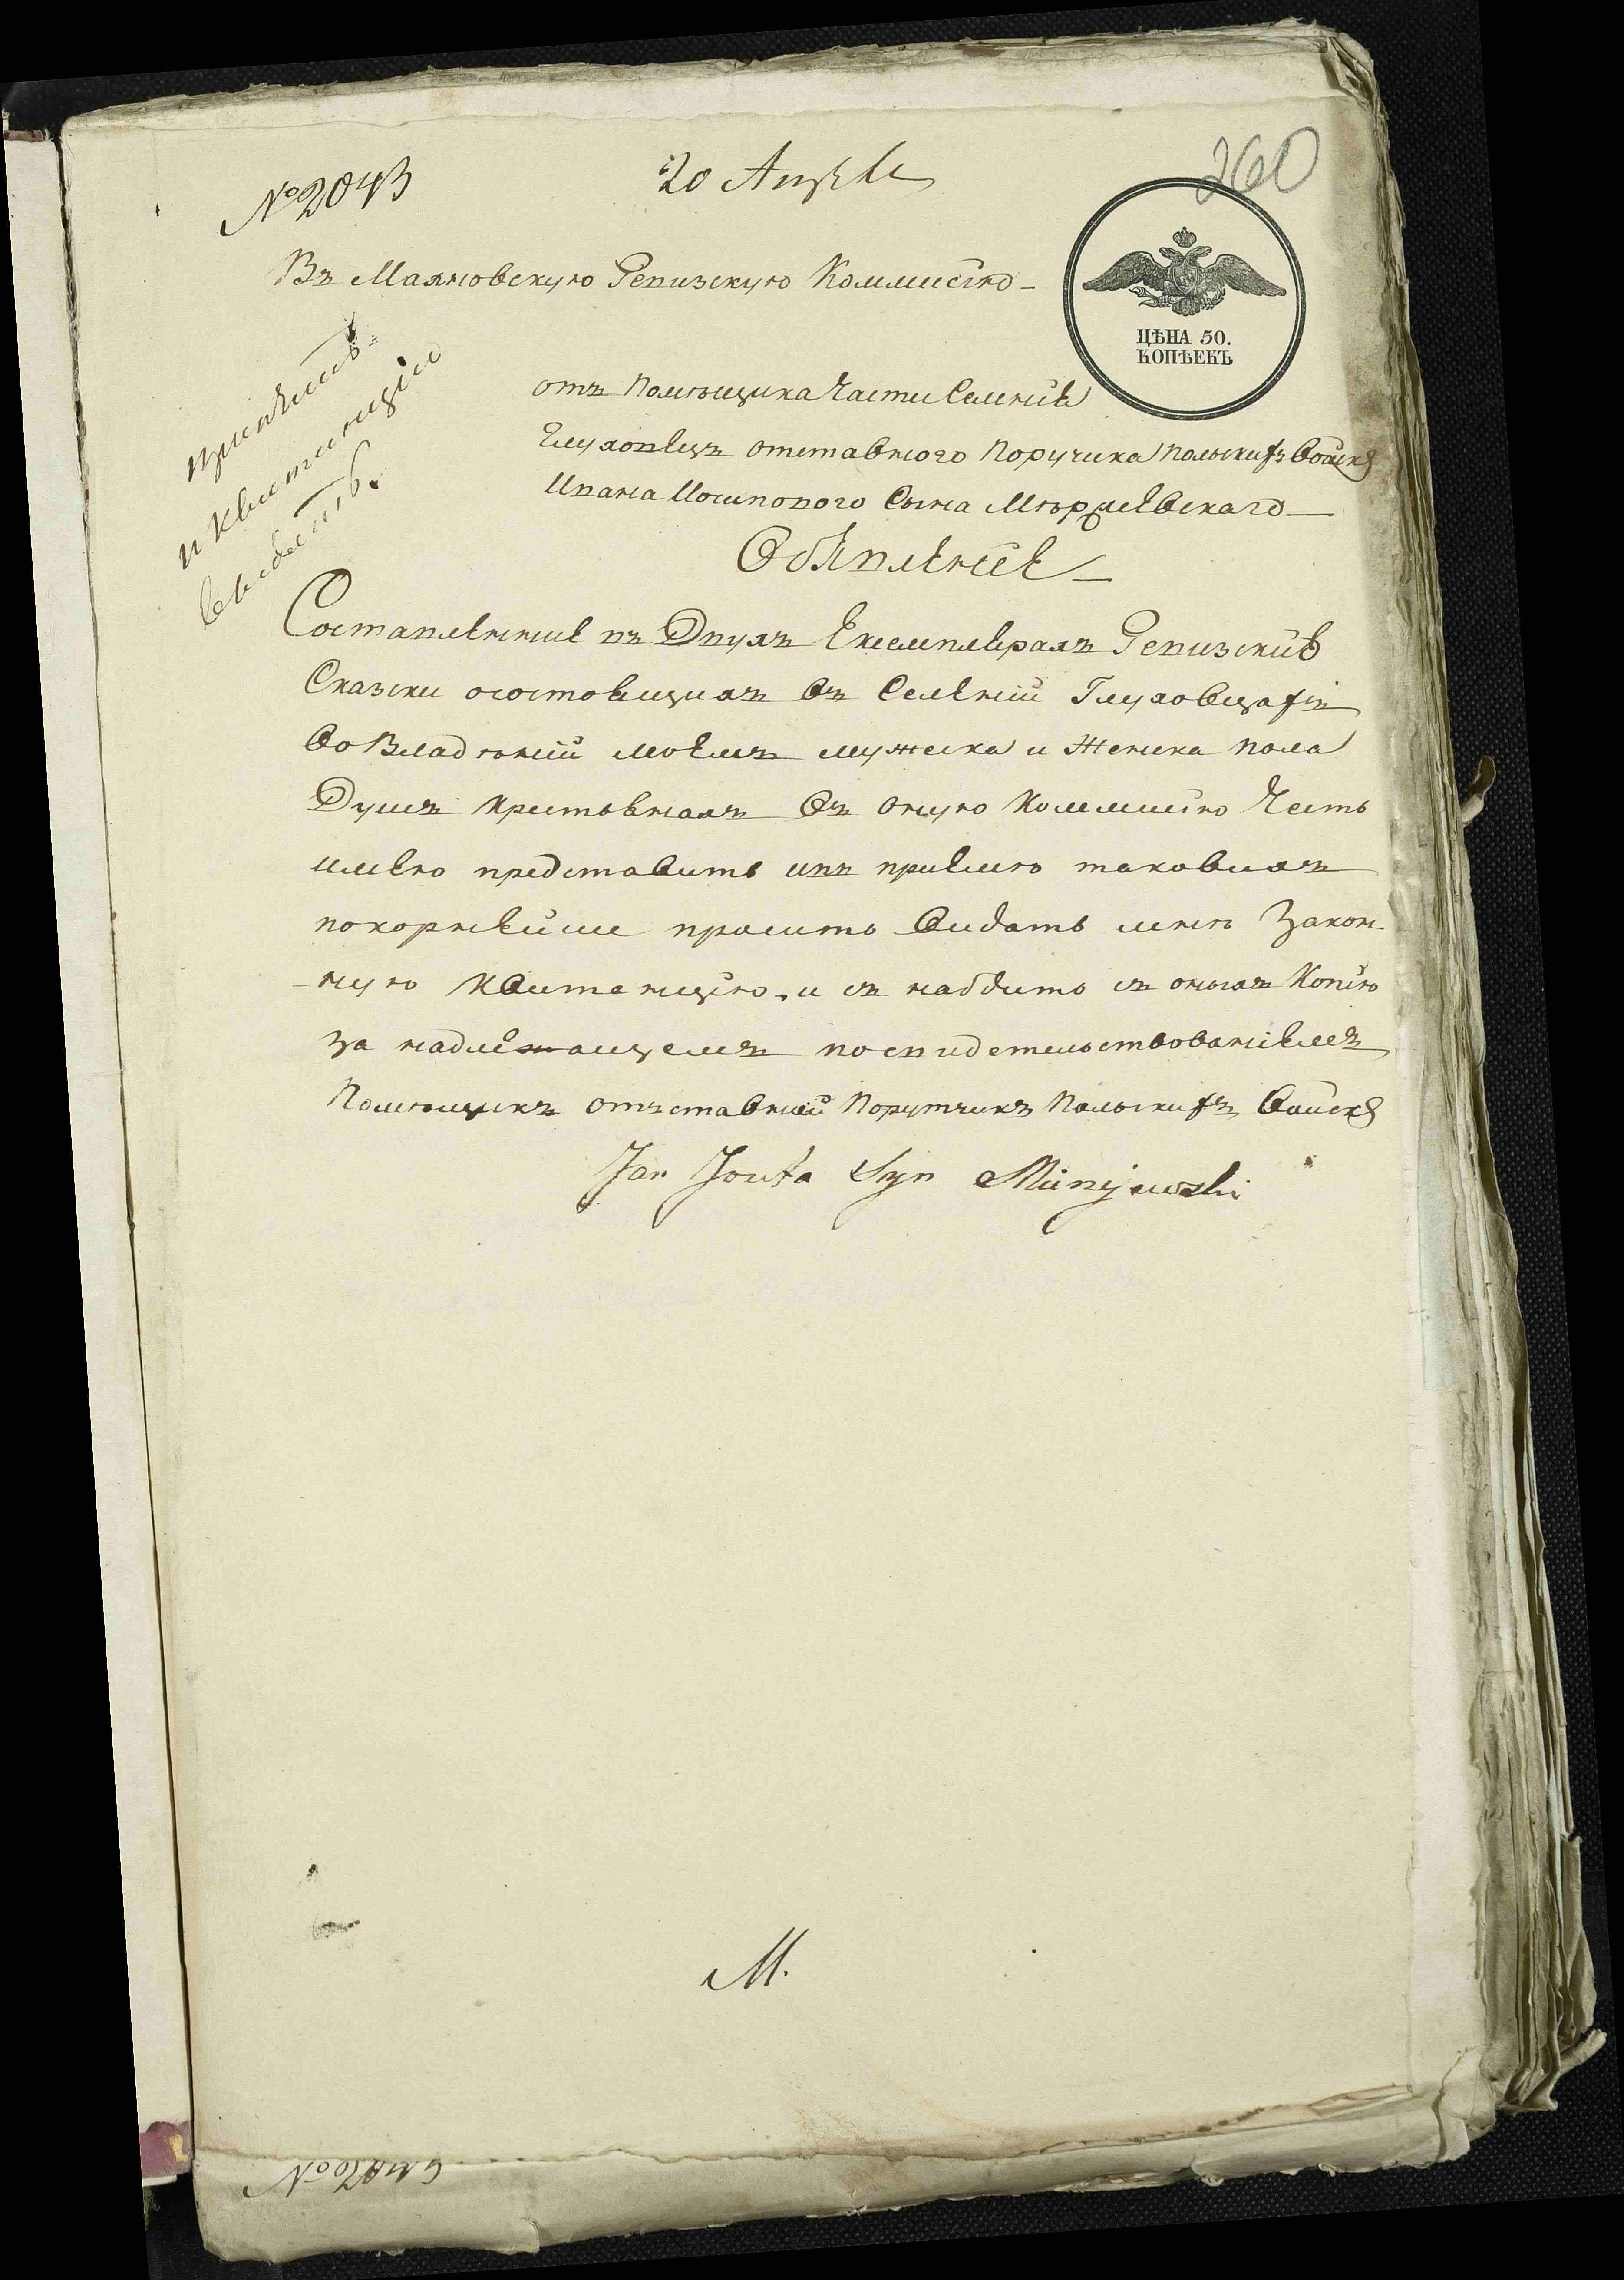 № 2043
20 Апреля
260
Въ Махновскую Ревизскую Коммисїю
ЦѢНА 50.
КОПѢЕКЪ
принять
и квитанцїю
выдать.
отъ Помѣщика Части Селенїя
Глуховецъ отставного Поручика Польскихъ Войскъ
Ивана Іосипового Сына
Обявленїе
Составленние въ Двухъ Екземплярахъ Ревизскїя
Сказки о состоящихъ въ Селенїи Глуховцахъ
во Владѣнїи моемъ мужеска и женска пола
Душъ крестьянахъ въ оную Коммисїю Честь
имею представить и въ прїемѣ таковихъ
покорнейше просить видать мнѣ Закон-
-ную Квитанцїю, и снабдить съ оныхъ Копїю
за надлежащемъ посвидетельствованїемъ
Помѣщикъ отъставний Порутчикъ Польскихъ Войскъ
Jan Syn
М.